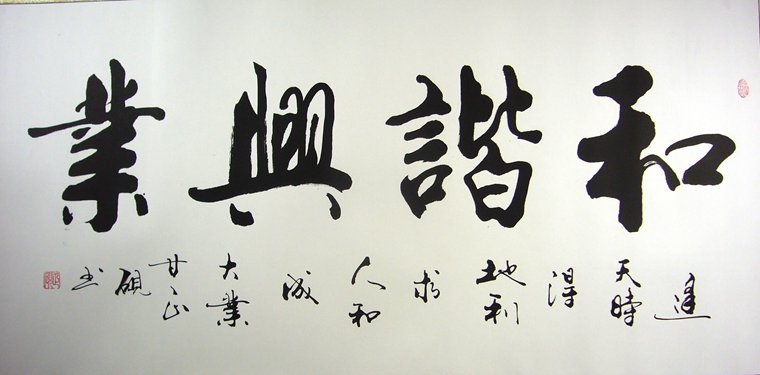 和諧興業
逢天時得地利求人和成大業
硯書